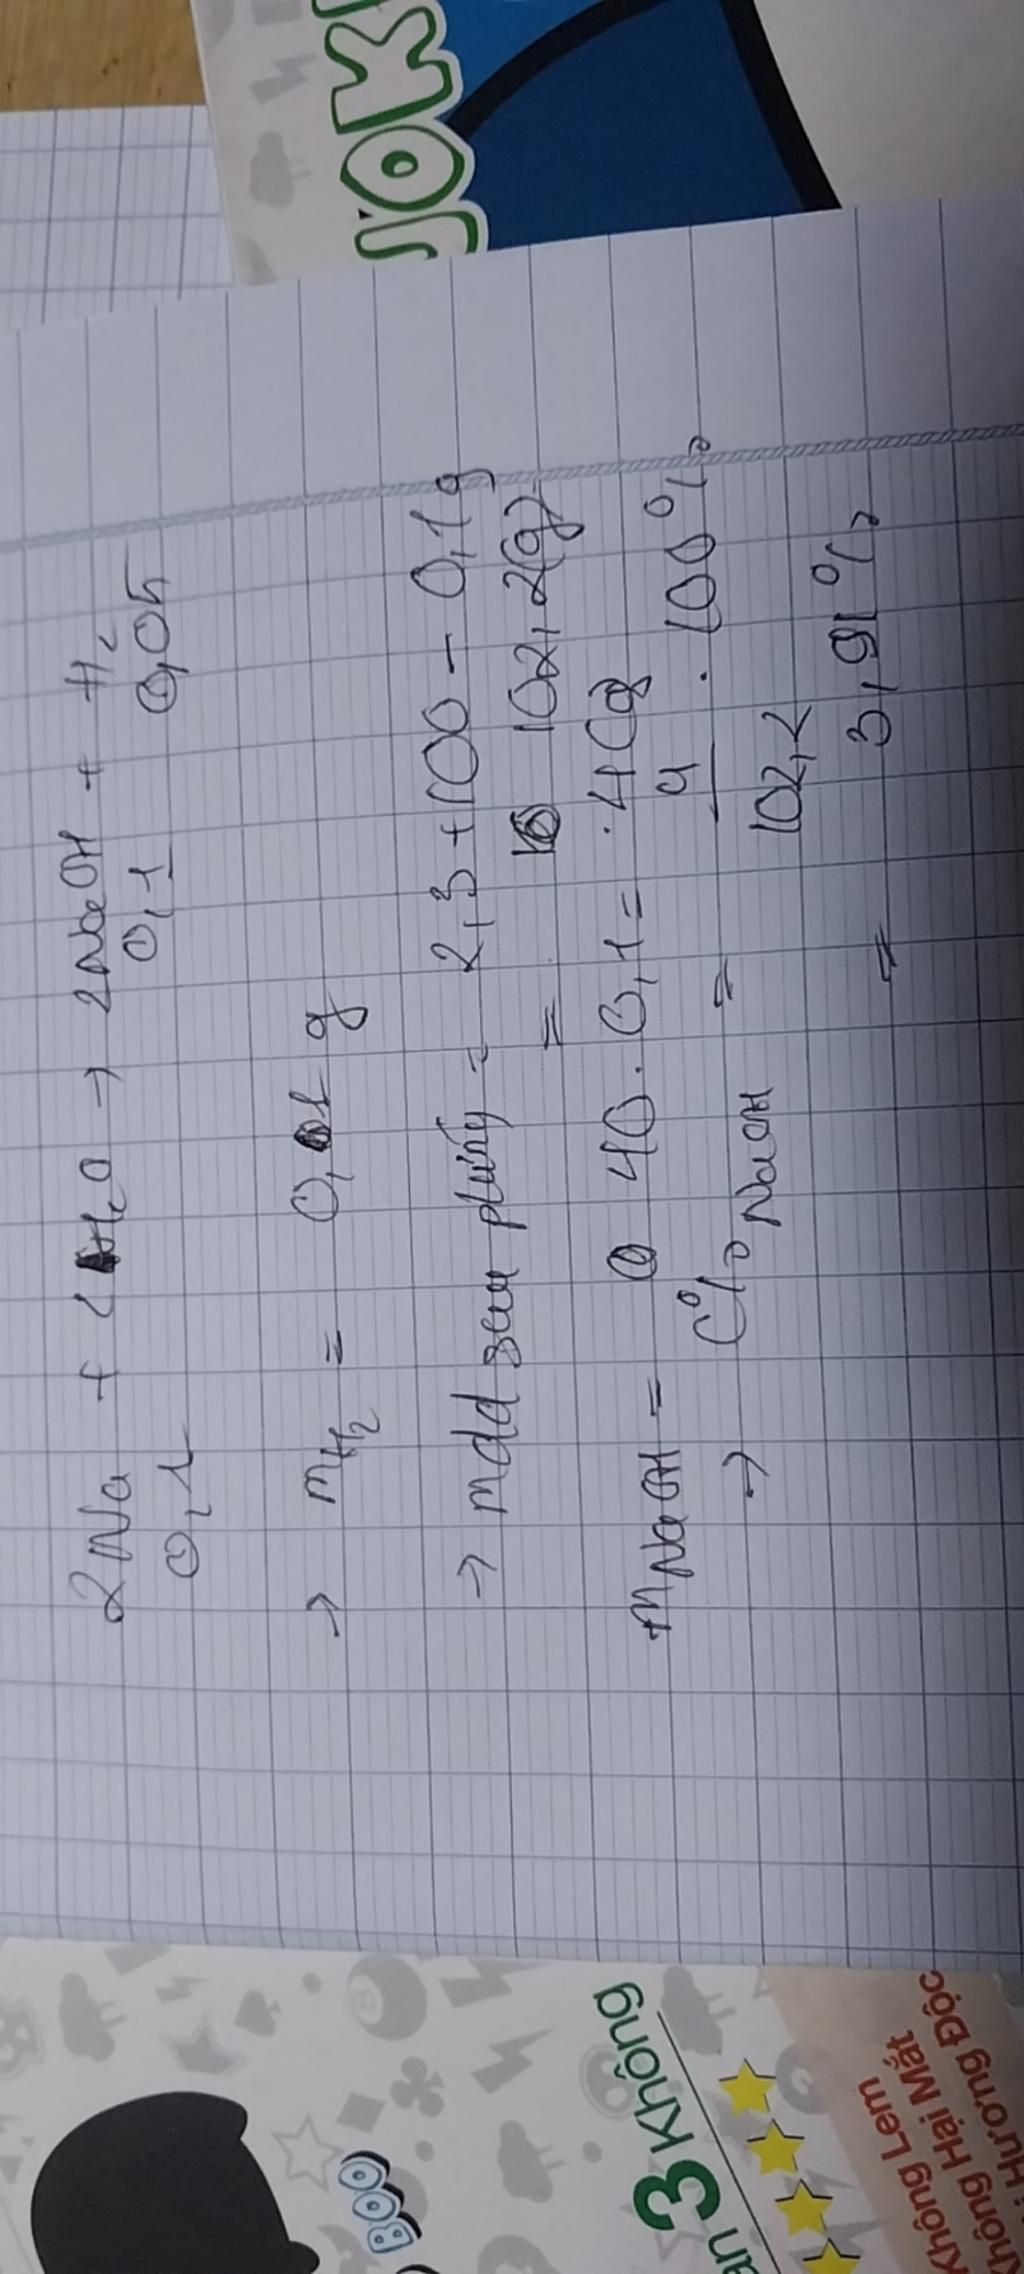 2Na + 2H₂O → 2NaOH + H₂
0,1 0,1 0,05
→ mH₂ = 0,1 g
→ mdd sau phứng = 2,3 + 100 - 0,1 g
= 102,2(g)
mNaOH = 40 . 0,1 = 4(g)
→ C% NaOH = 4 . 100%
102,2
= 3,91%
JOK
BOO
3 Không
Không Lem
Không Hại Mắt
Hương Độc